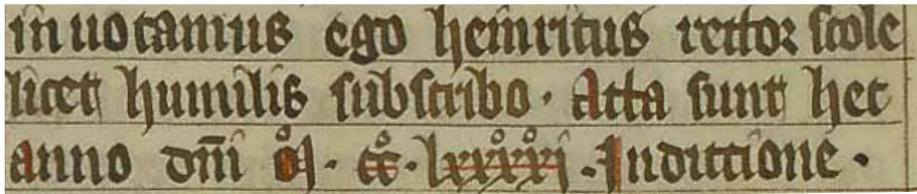 inuocamus ego heinricus rector scole
licet humilis subscribo · Acta sunt hec
anno dn̄i M̊ · CC̊ · lxxxx̊i̊ · Indictione ·